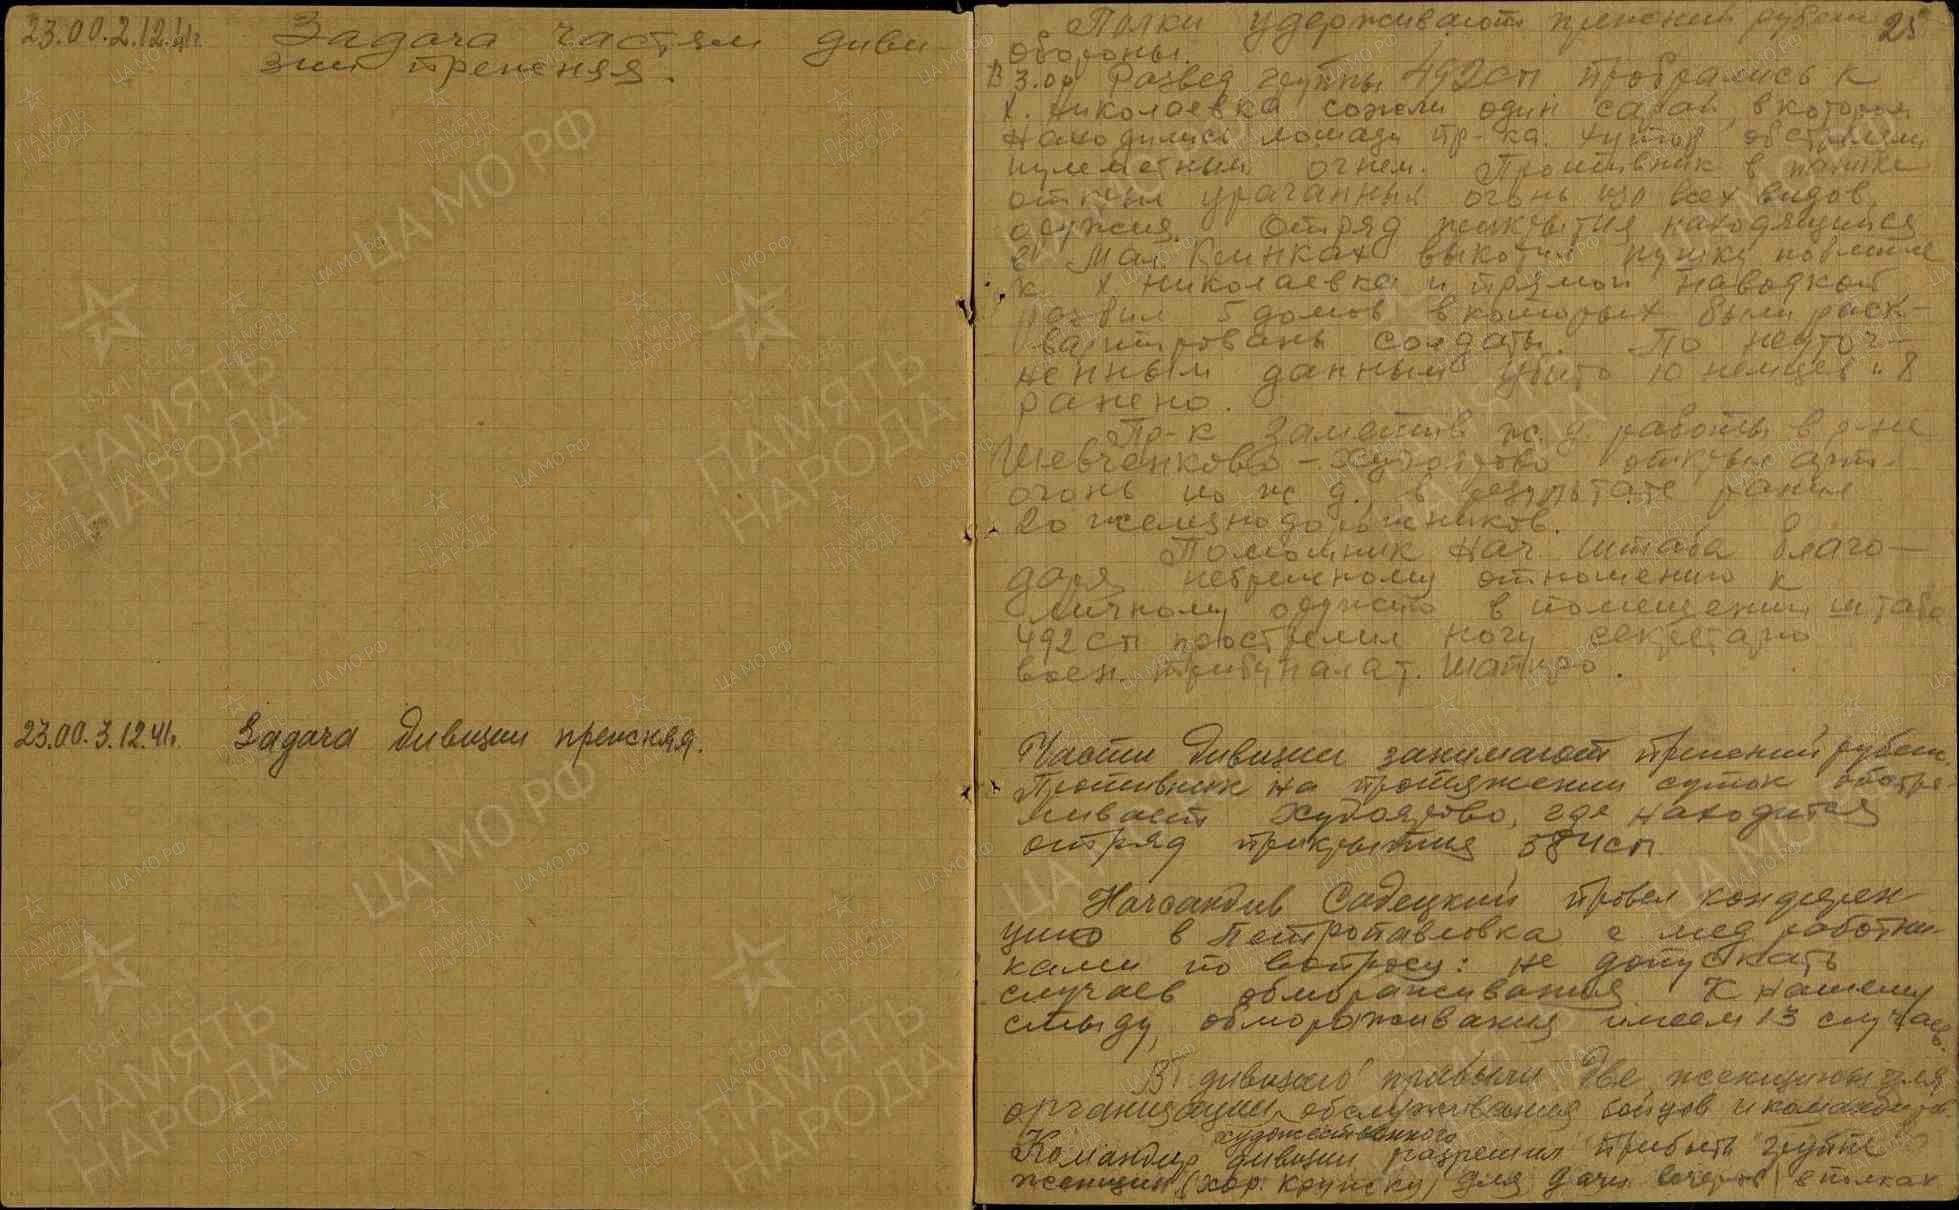 23.00.2.12.41г. Задача частям диви-
зии прежняя.
23.00.3.12.41г. Задача дивизии прежняя.
25
Полки удерживают прежний рубеж
обороны.
В 3.00 Развед группы 492сп пробрались к
х. Николаевка сожгли один сарай, в котором
находились лошади пр-ка. Хутор обстреляли
пулеметным огнем. Противник в панике
открыл ураганный огонь изо всех видов
оружия. Отряд прикрытия находящийся
в Мал. выкотил пушку поближе
к х. Николаевка и прямой наводкой
разбил 5 домов в которых были раск-
вартированы солдаты. По неуточ-
ненным данным убито 10 немцев и 8
ранено.
Пр-к заметив ж.д. работы в р-не
Шевченково - Худоярово открыл арт.
огонь по ж д., в результате ранил
20 железнодорожников.
Помощник Нач. Штаба благо-
даря небрежному отношению к
личному оружию в помещении штаба
492сп прострелил ногу секретарю
воен. трибунала т. Шапиро.
Части дивизии занимают прежний рубеж.
Противник на протяжении суток обстре-
ливает Худоярово, где находится
отряд прикрытия 584сп.
Начсандив Садецкий провел конферен-
цию в Петропавловка с мед работни-
ками по вопросу: не допускать
случаев обмораживания. К нашему
стыду, обмораживания имеем 13 случаев.
В дивизию прибыли две женщины для
организации обслуживания бойцов и командиров
художественного
Командир дивизии разрешил прибыть группе
женщин (хор. кружку) для дачи вечеров в полках